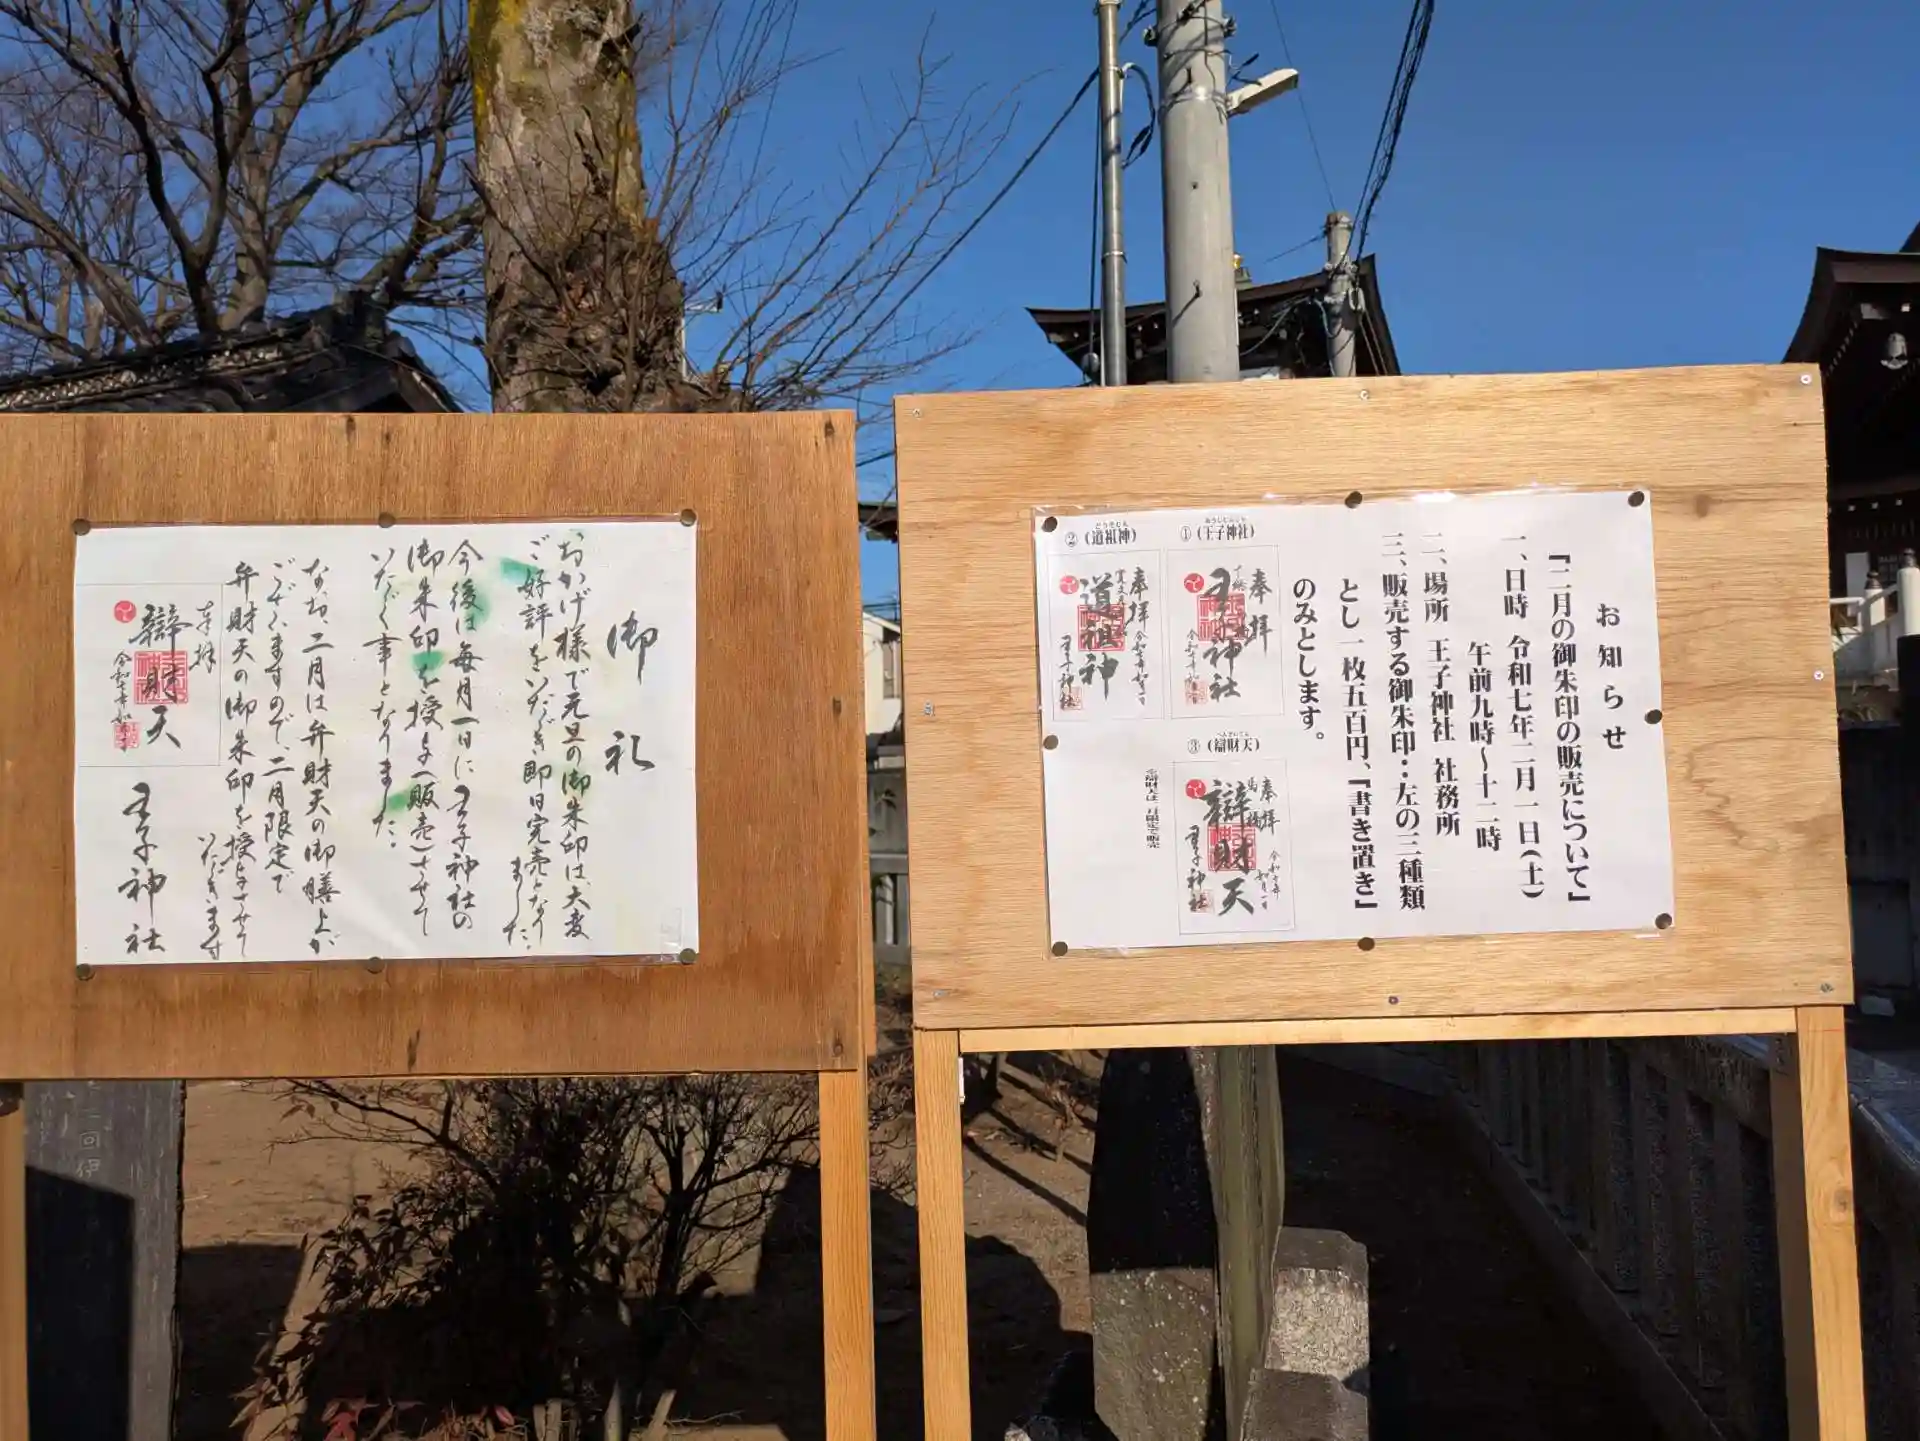 御礼
おかげ様で元旦の御朱印は、大変
ご好評をいただき即日完売となり
ました。
今後は毎月一日に王子神社の
御朱印を授与(販売)させて
いただく事となりました。
なお、二月は弁財天の御膳上が
ございますので、二月限定で
弁財天の御朱印を授与させて
いただきます
王子神社
奉拝
辯財天
お知らせ
『二月の御朱印の販売について』
一、日時 令和七年二月一日(土)
午前九時～十二時
二、場所 王子神社 社務所
三、販売する御朱印:左の三種類
とし一枚五百円、『書き置き』
のみとします。
①(王子神社)
おうじじんじゃ
奉拝
王子神社
②(道祖神)
どうそじん
奉拝
道祖神
王子神社
③(辯財天)
べんざいてん
奉拝
辯財天
王子神社
※辯財天は二月限定で販売